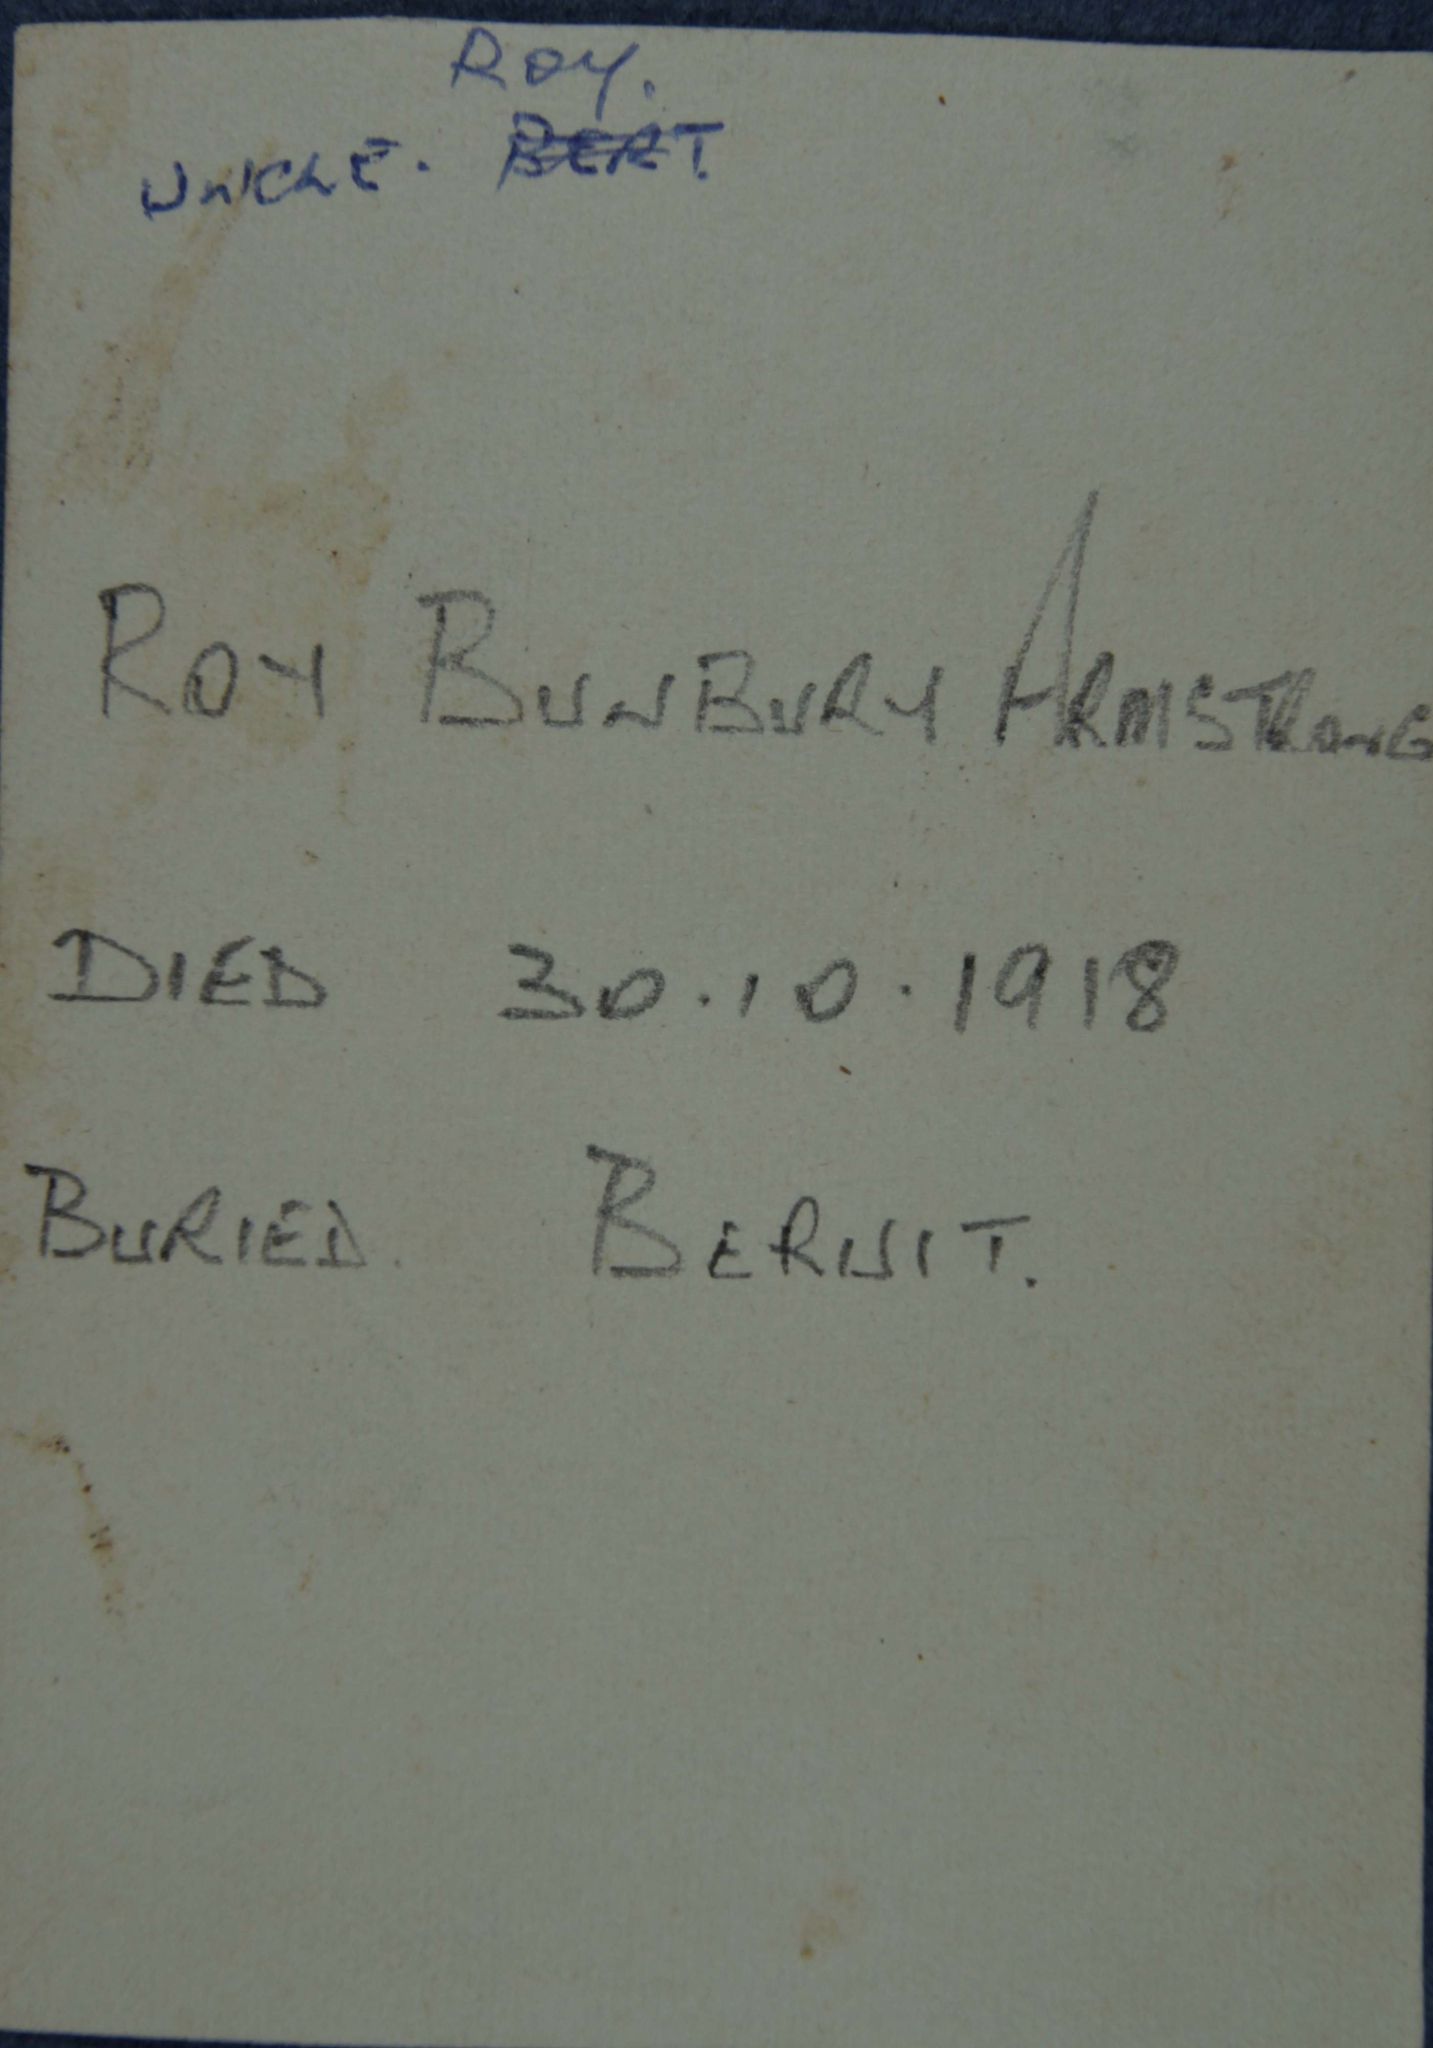 ROY.
UNCLE. BERT.
ROY BUNBURY ARMSTRONG
DIED 30.10.1918
BURIED. BERUIT.